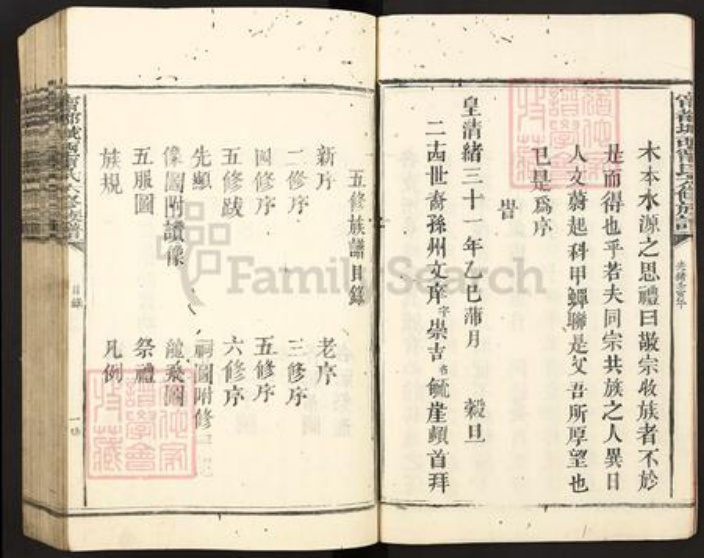 木本水源之思禮曰敬宗收族者不於
是而得也乎若夫同宗共族之人異日
人文蔚起科甲蟬聯是又吾所厚望也
已是爲序
皇清緒三十一年乙巳蒲月 穀旦
二十四世裔孫州文庠字崇吉名毓崖頓首拜
五修族譜目錄
新序 老序
二修序 三修序
四修序 五修序
五修跋 六修序
先顯 祠圖附修
像圖附讚像 龍瑑圖
五服圖 祭禮
族規 凡例
目錄
FamilySearch